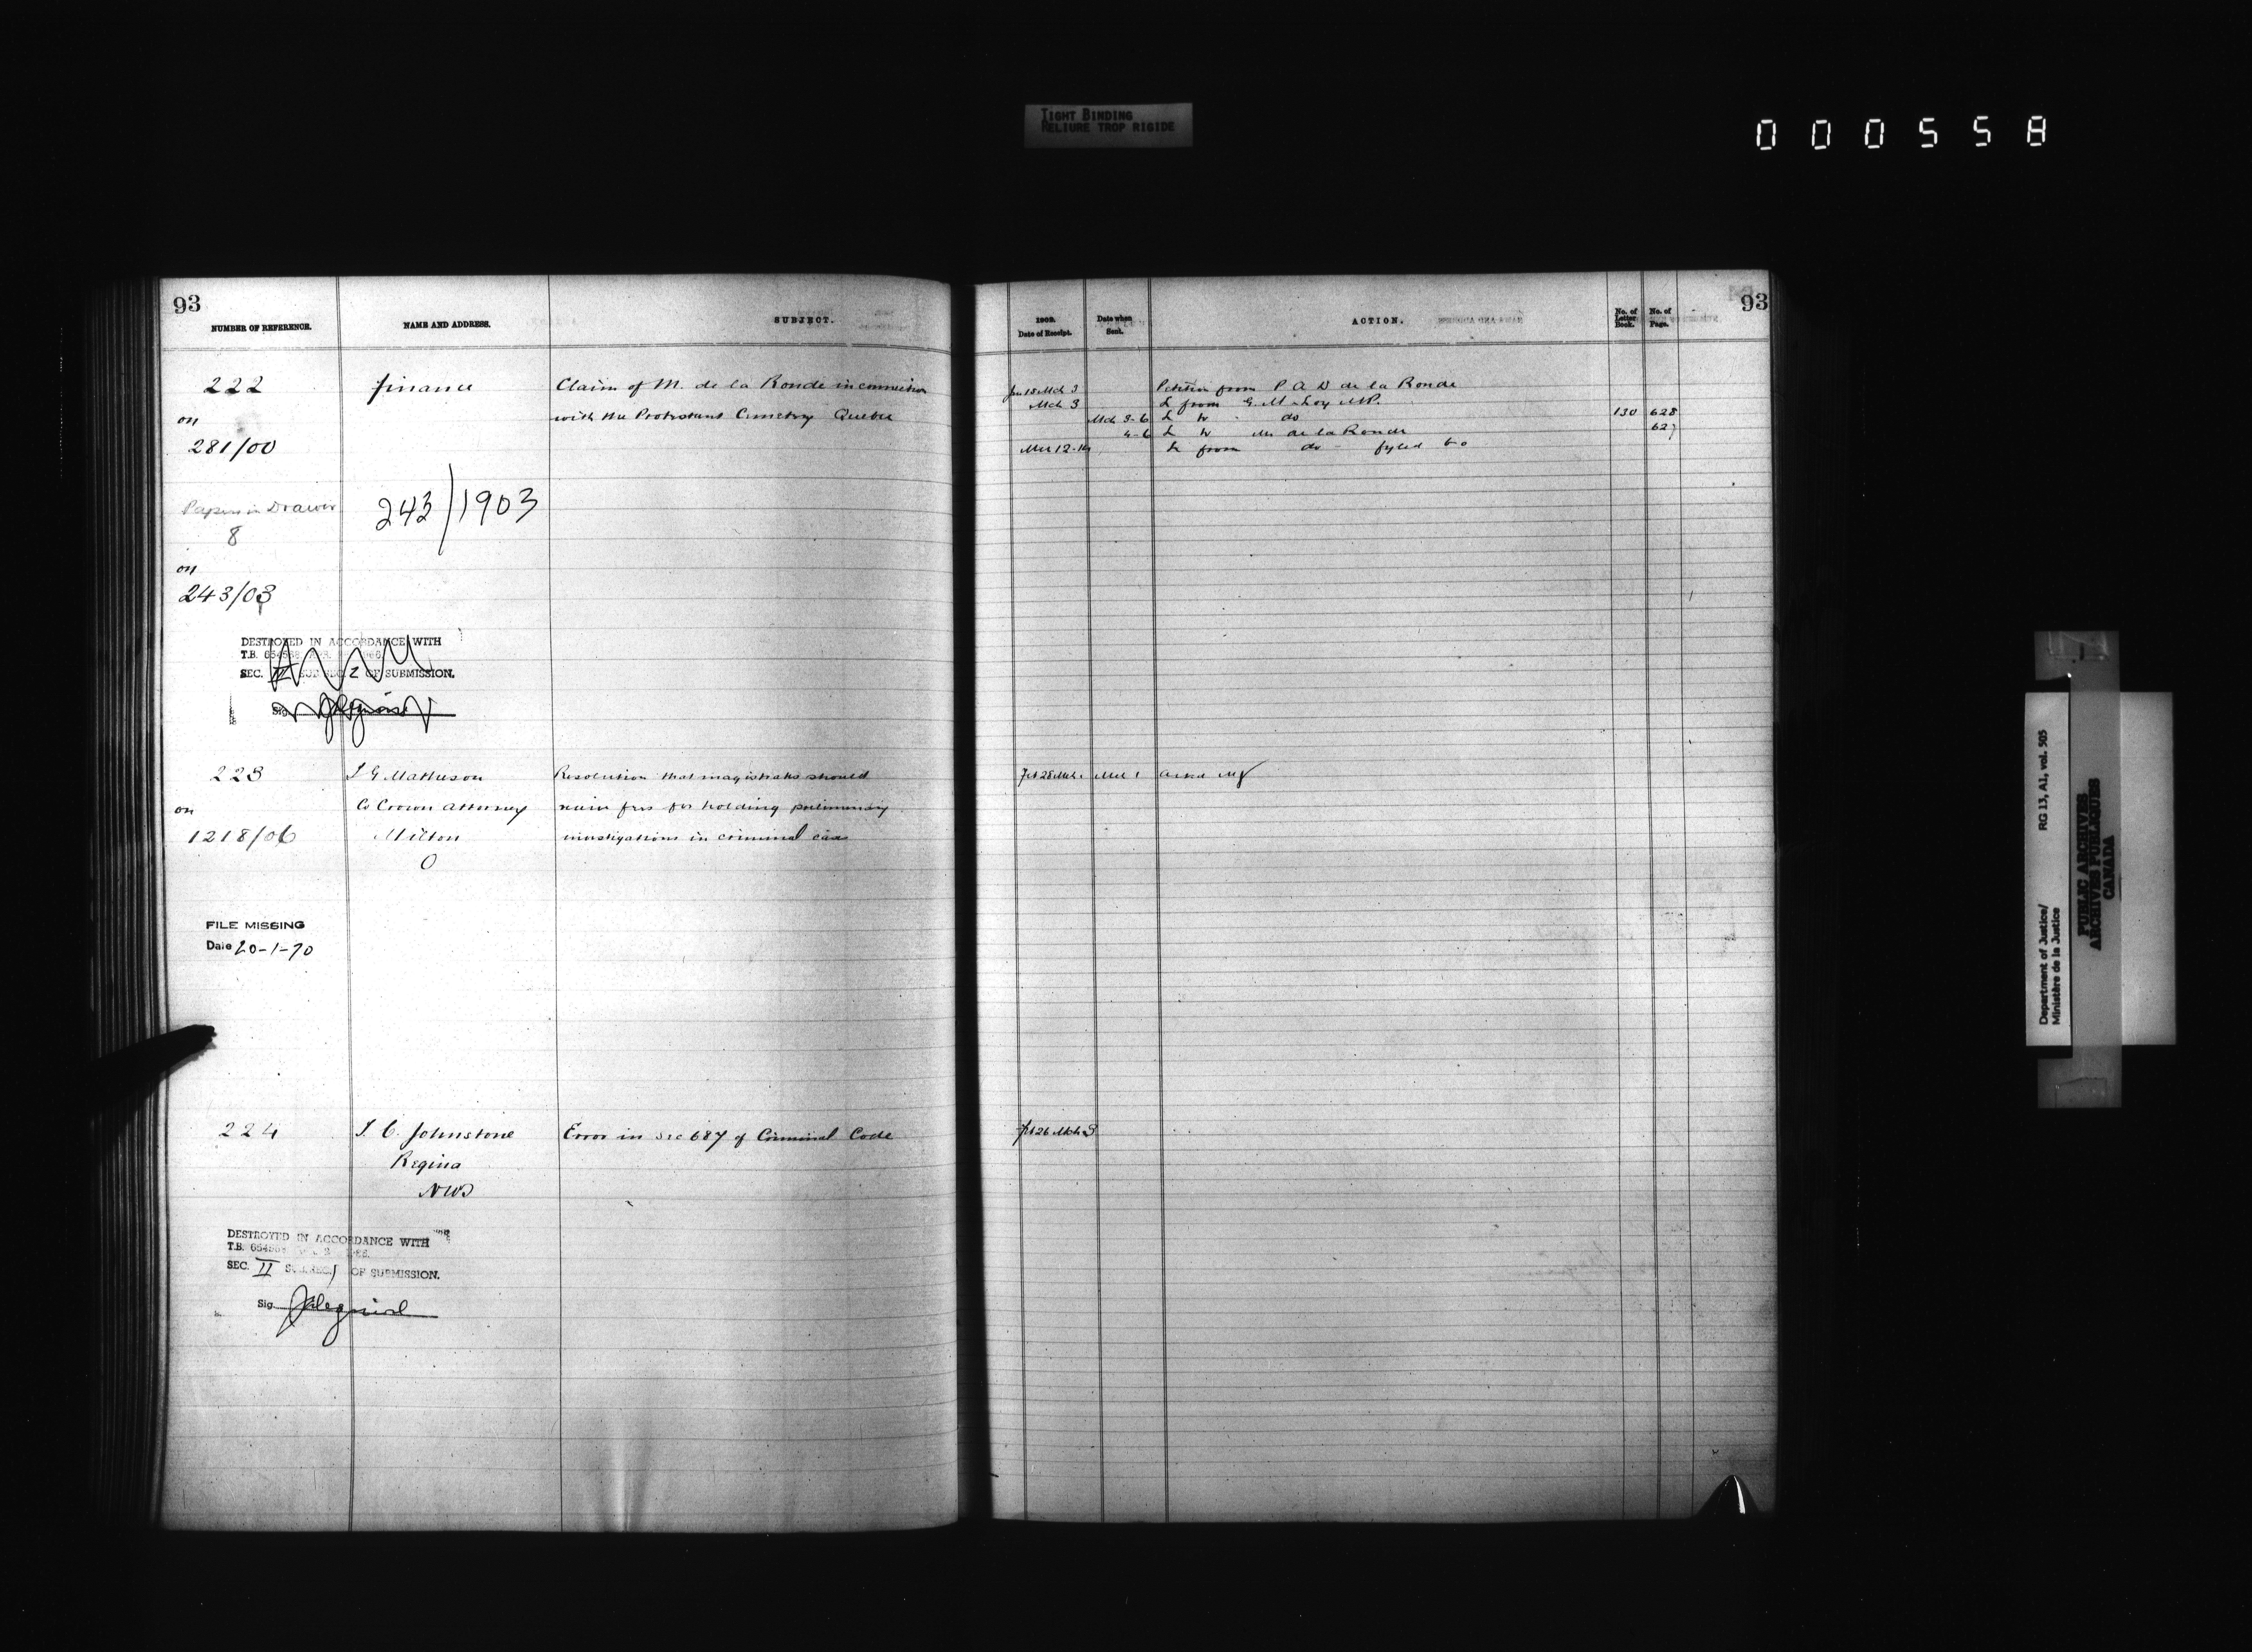 TIGHT BINDING
RELIURE TROP RIGIDE
000558
93
NUMBER OF REFERENCE.
NAME AND ADDRESS.
SUBJECT.
222
finance
Claim of M. de la Ronde in connection
on
with the Protestant Cemetry Quebec
281/00
Papers in Drawer
8
243/1903
on
243/03
DESTROYED IN ACCORDANCE WITH
T.B. 654568
SEC. II SUB SEC. 2 OF SUBMISSION.
Sig.
223
J G Matheson
Resolution that magistrates should
on
Co Crown Attorney
receive fees for holding preliminary
1218/06
Milton
investigations in criminal cases
O
FILE MISSING
Date 20-1-70
224
T. C. Johnstone
Error in Sec 687 of Criminal Code
Regina
NWT
DESTROYED IN ACCORDANCE WITH
T.B. 654568
SEC. II SUB SEC. 1 OF SUBMISSION.
Sig.
93
1902.
Date of Receipt.
Date when
Sent.
ACTION.
No. of
Letter
Book.
No. of
Page.
Jan 18 Mch 3 Petition from P A D de la Ronde
Mch 3 L from G. M
Mch 3-6 L to do 130 628
4-6 L to de la Ronde 627
12-14 L from do fyled
Feb 28
Feb 26 Mch 3
Department of Justice/
Ministère de la Justice
RG 13, A1, vol. 505
PUBLIC ARCHIVES
ARCHIVES PUBLIQUES
CANADA